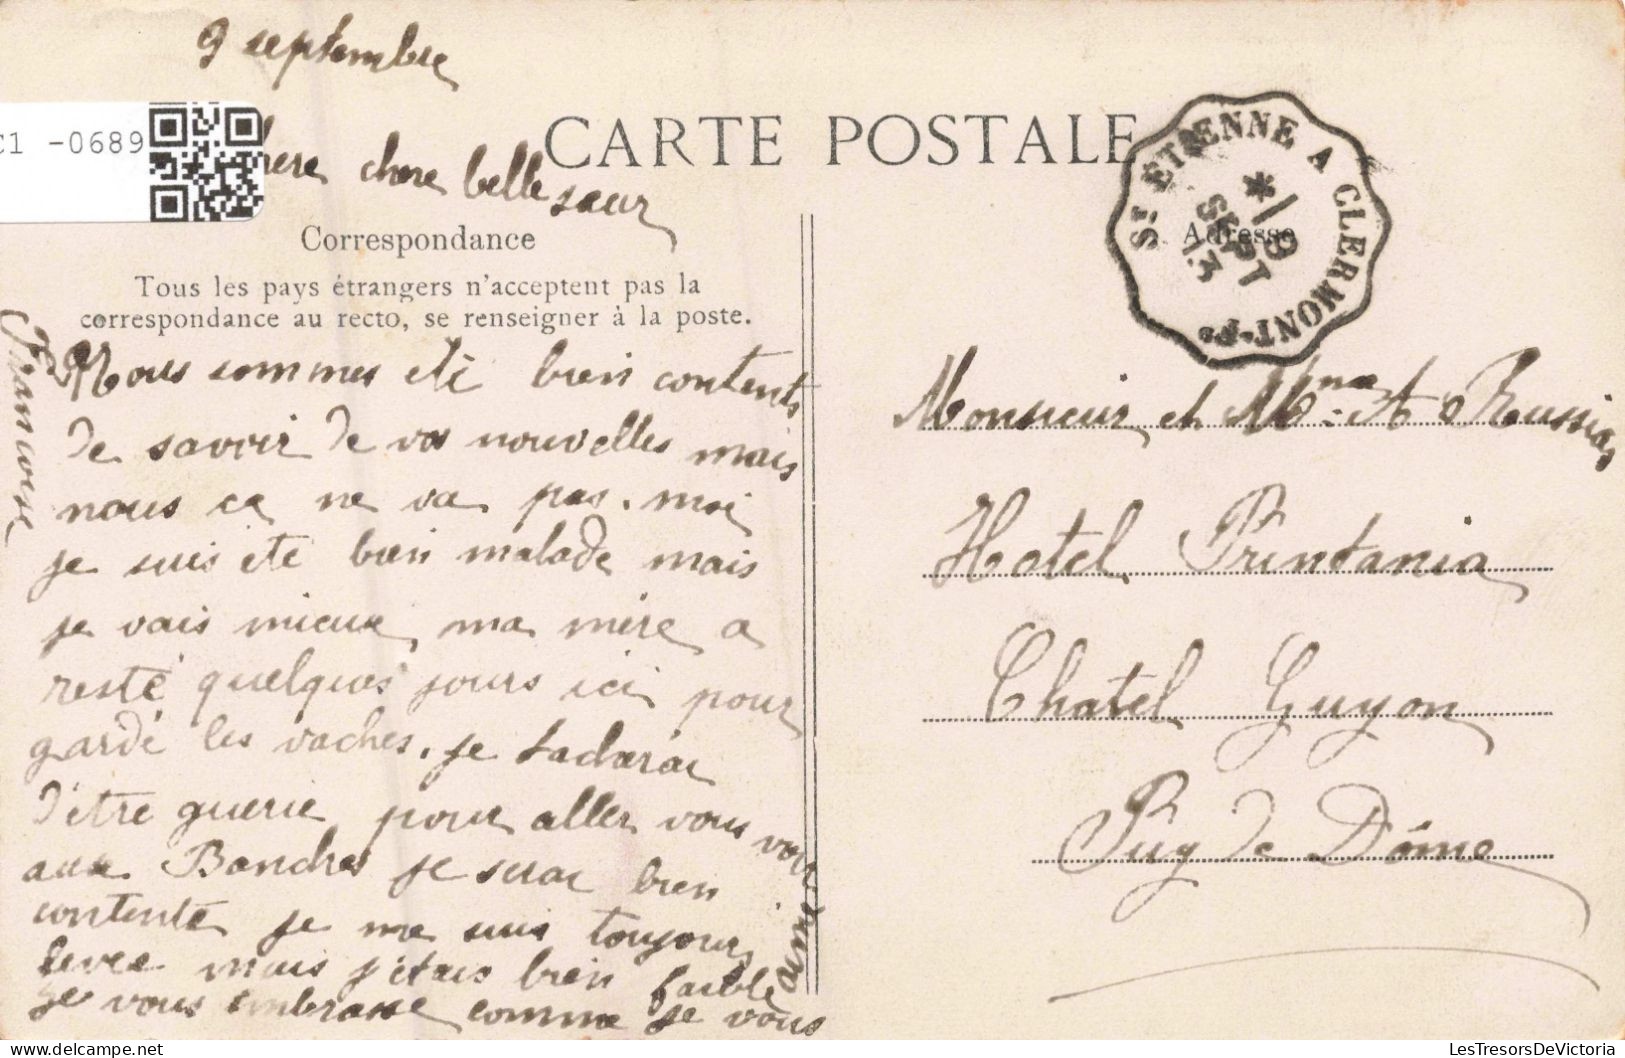 9 septembre
C1 -0689
CARTE POSTALE
chere belle soeur
Correspondance
Tous les pays étrangers n'acceptent pas la
correspondance au recto, se renseigner à la poste.
Nous sommes eté bien contents
de savoir de vos nouvelles mais
nous ca ne va pas. moi
je suis ete bien malade mais
je vais mieux ma mère a
resté quelques jours ici pour
gardé les vaches. je tacherai
d'etre guerie pour aller vous voir
aux je serai bien
contente je me suis toujours
levee mais j'etais bien faible
je vous embrasse comme je vous
aime
Francoise
ST ETIENNE A CLERMONT-FD
* 1
9
SEPT
13
Adresse
Monsieur et Mme A
Hotel Printania
Chatel Guyon
Puy de Dôme
LesTresorsDeVictoria